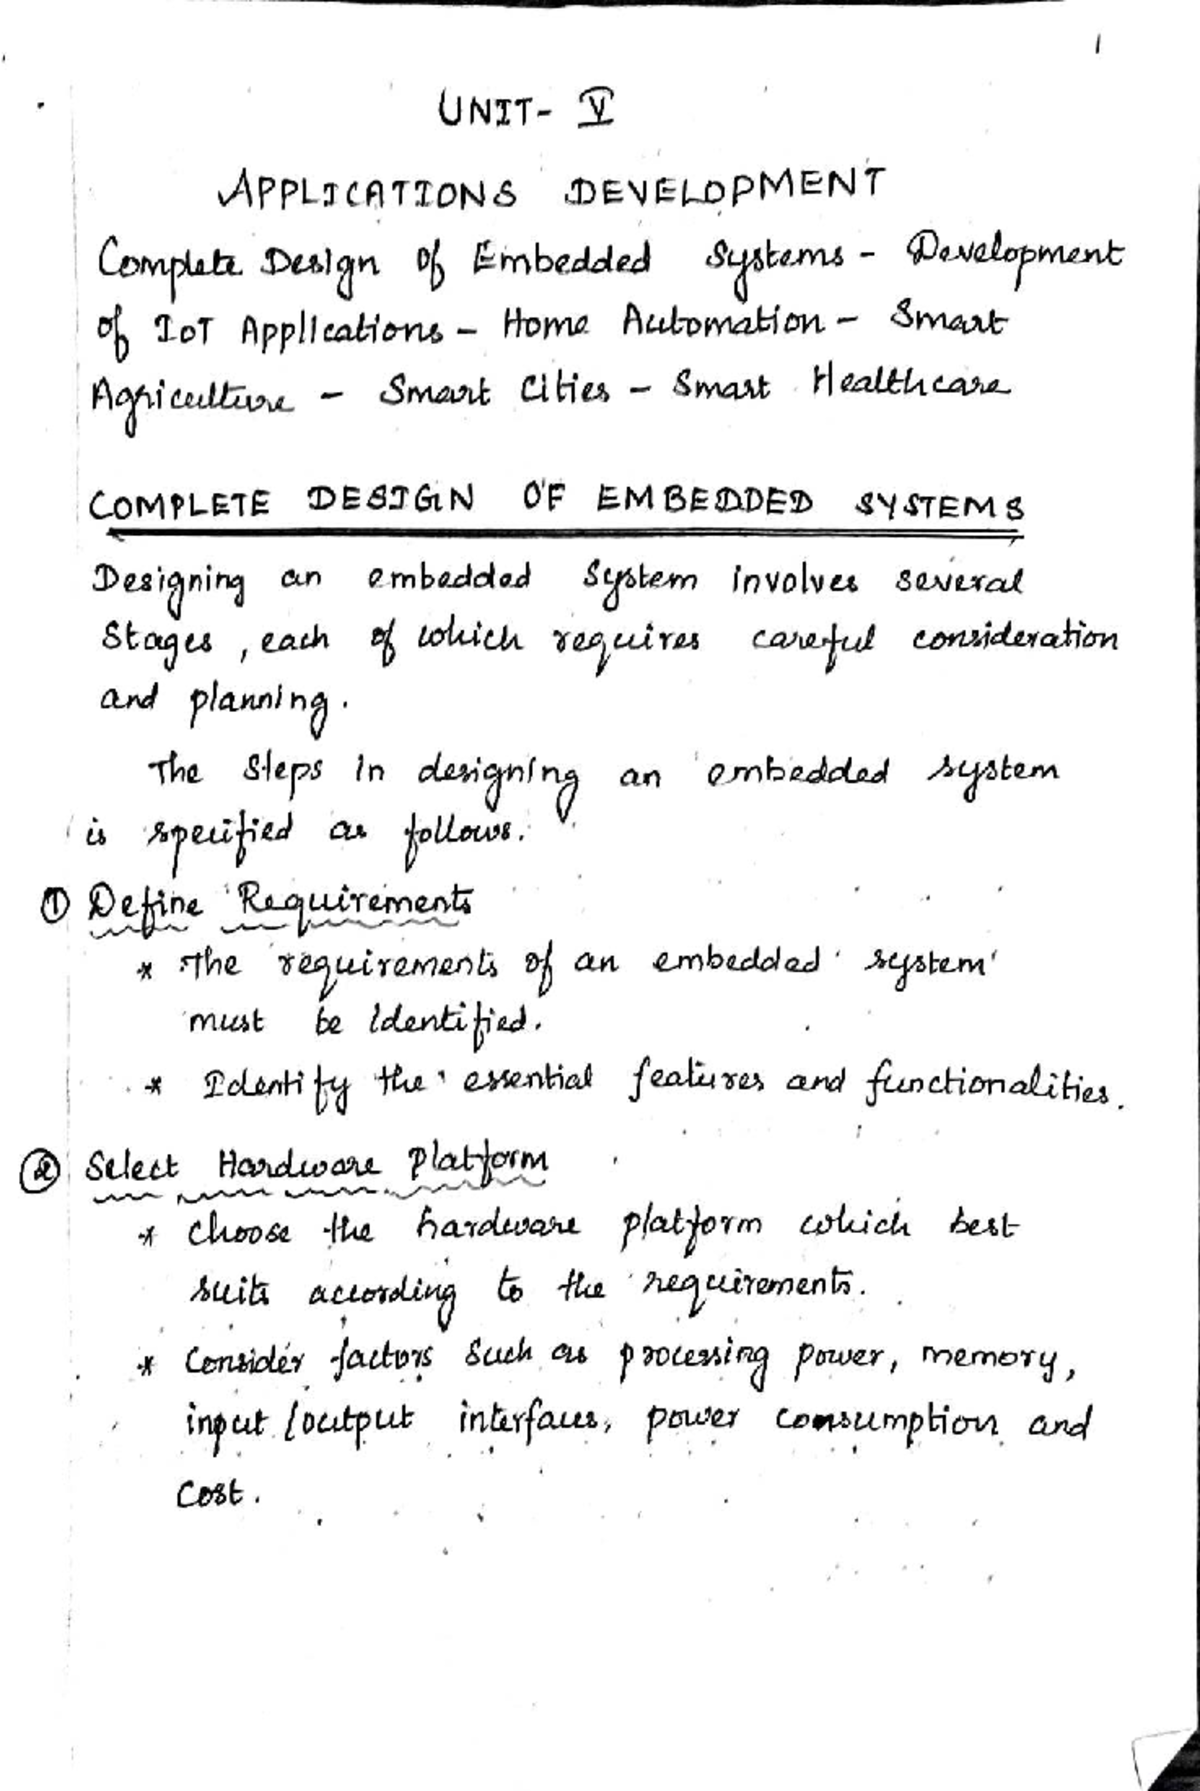 1
UNIT- V
APPLICATIONS DEVELOPMENT
Complete Design of Embedded Systems - Development
of IoT Applications - Home Automation - Smart
Agriculture - Smart Cities - Smart Healthcare
COMPLETE DESIGN OF EMBEDDED SYSTEMS
Designing an embedded System involves several
Stages, each of which requires careful consideration
and planning.
The Steps in designing an embedded system
is specified as follows.
① Define Requirements
* The requirements of an embedded system
must be identified.
* Identify the essential features and functionalities.
② Select Hardware Platform
* Choose the hardware platform which best
suits according to the requirements.
* Consider factors such as processing power, memory,
input/output interfaces, power consumption and
cost.